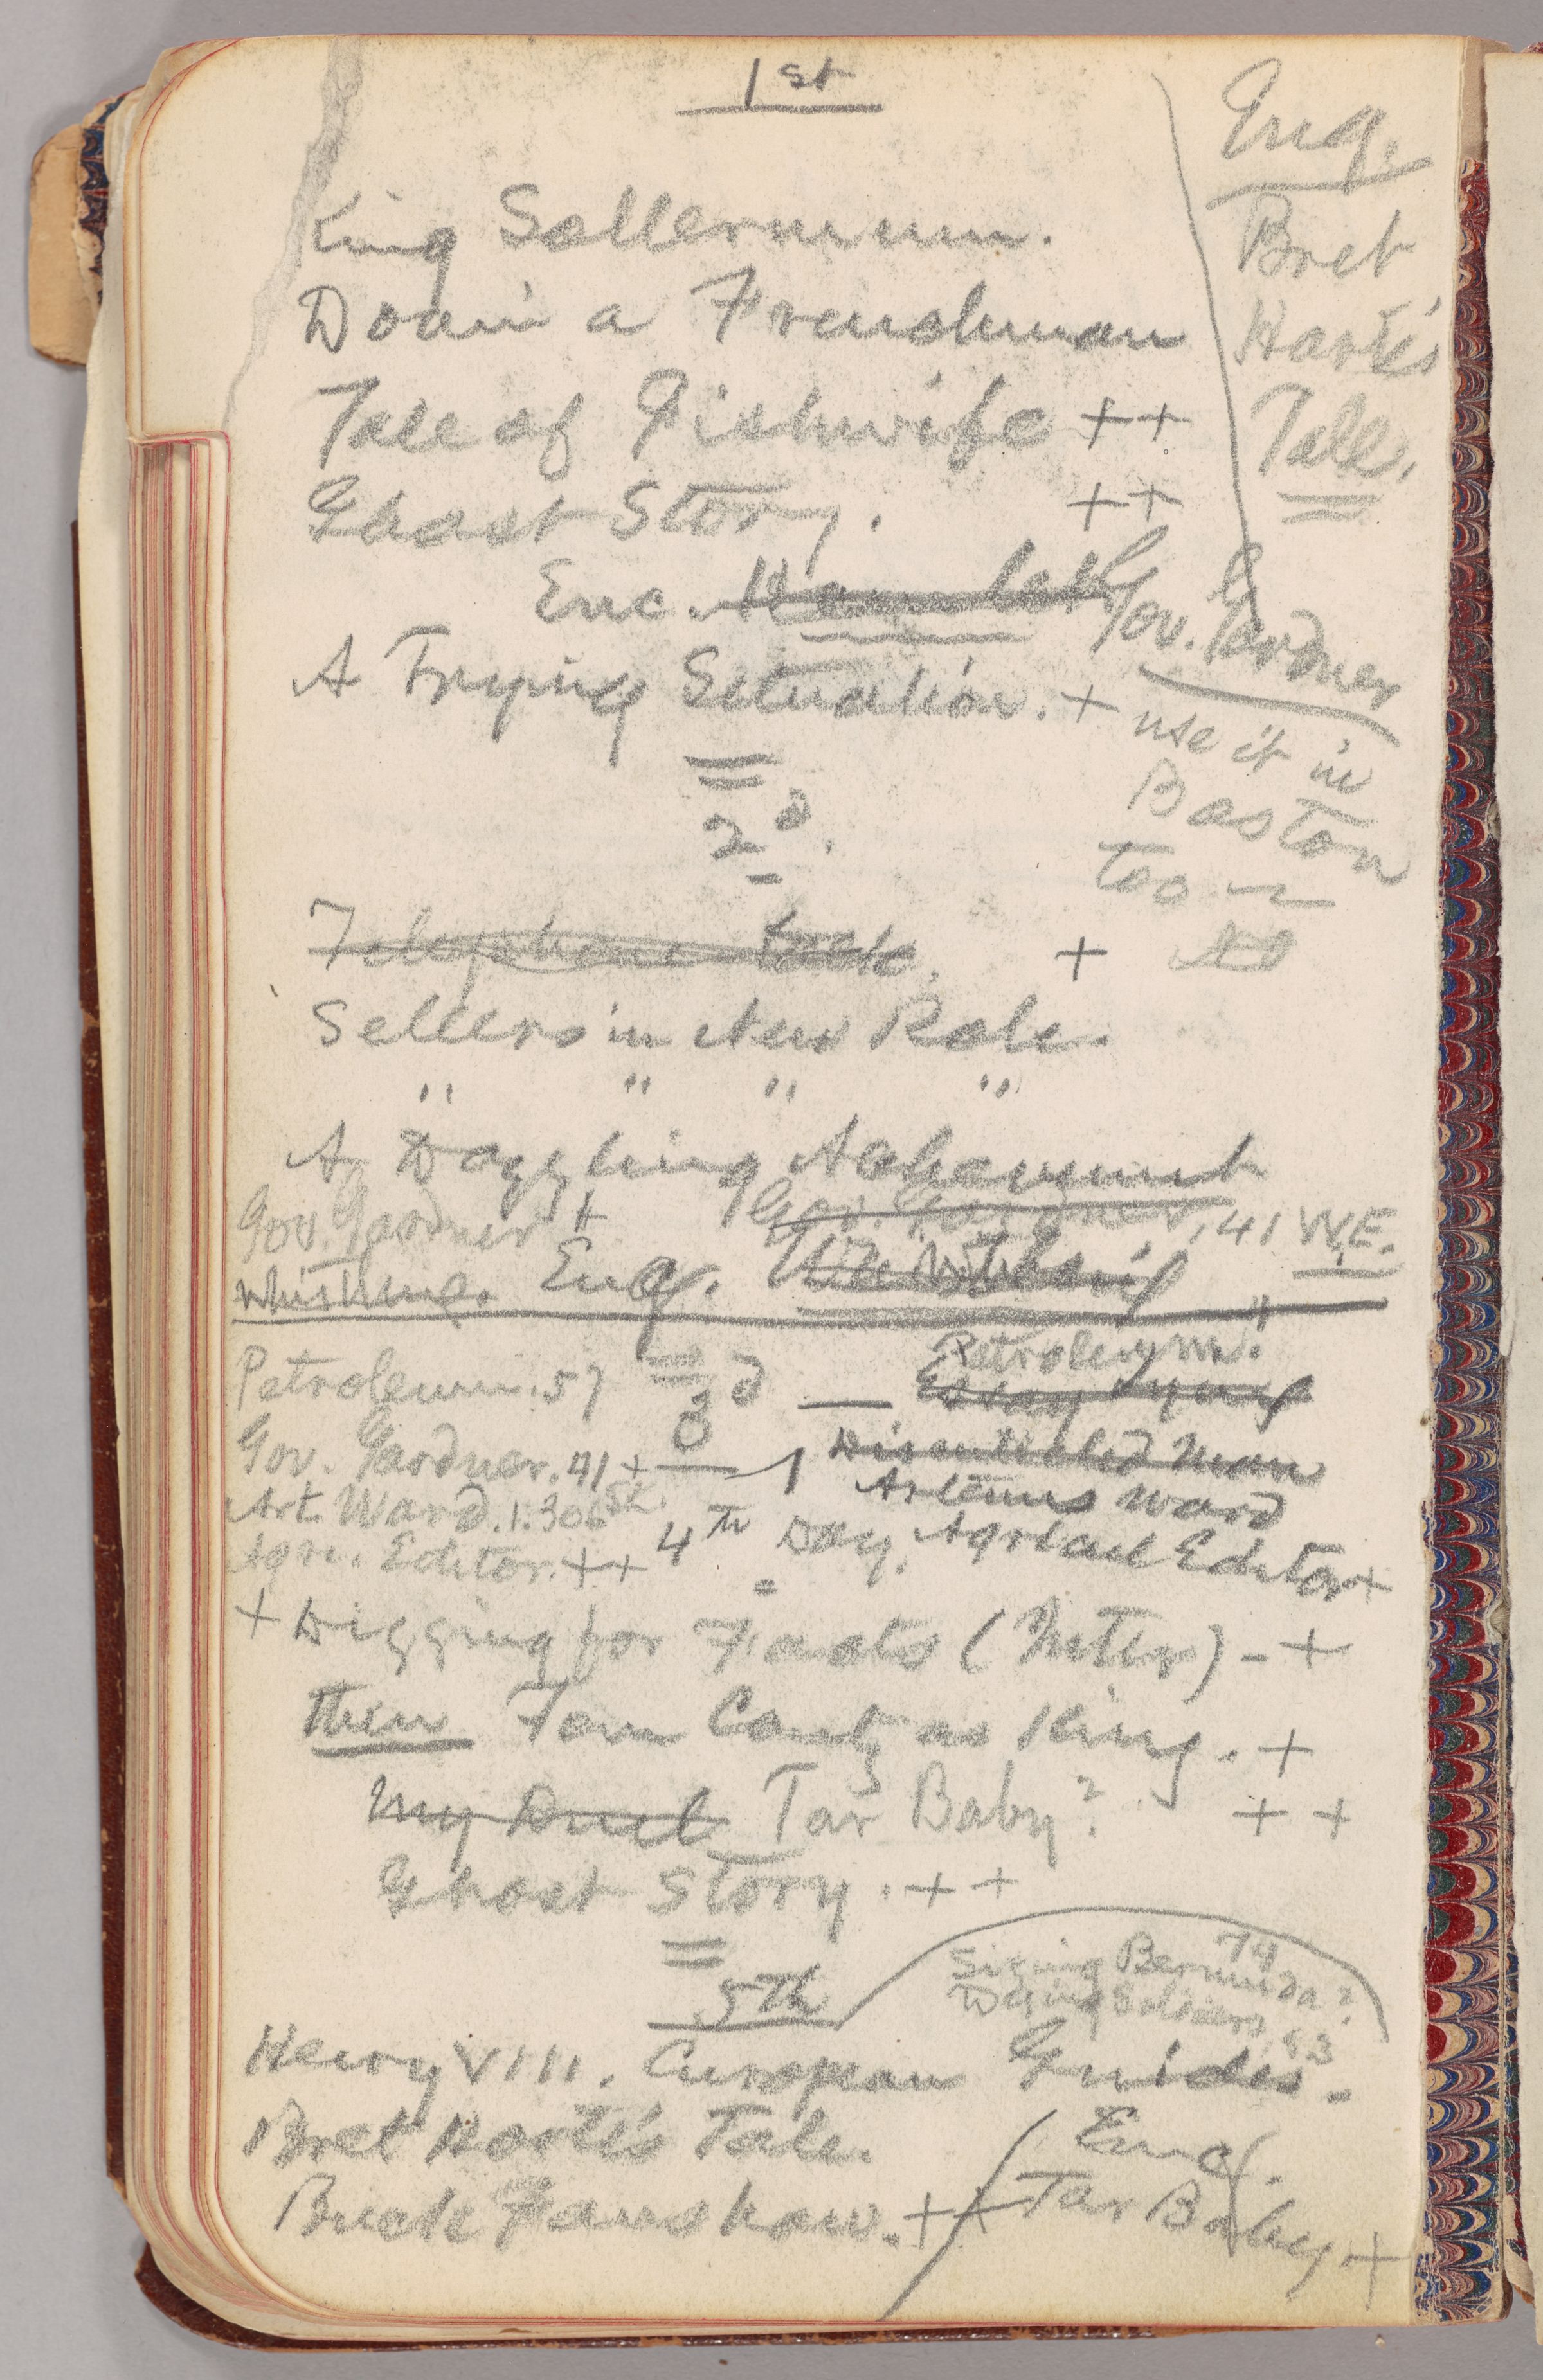 1st
King Sollermunn.
Doain a Frenchman
Tale of Fishwife ++
Ghost Story. ++
Enc. Hamlet
Gov. Gardner
A Trying Situation. +
Enq.
Bret
Harte's
Tale.
use it in
Boston
too —
2d.
Telephone +
Sellers in New Role.
" " " "
A Dazzling Achievement
Gov. Gardner + Gov. Gardner, 41 W.E.
whistling. Enq.
Petroleum. 57
3d — Petroleum.
Essay Dying
Gov. Gardner. 41 +
Disentitled Man
Art. Ward. 1.306
Artemus Ward
Agri. Editor. ++ 4th Day. Agricul Editor +
+ Digging for Facts (Niter) - +
then Tom Canty as King. +
My Duel Tar Baby? ++
Ghost Story. ++
5th
74
Bermuda?
Dying Soldier, 53
Henry VIII. European Guides.
Bret Harte's Tale.
Buck Fanshaw. ++
Enq.
Tar Baby +